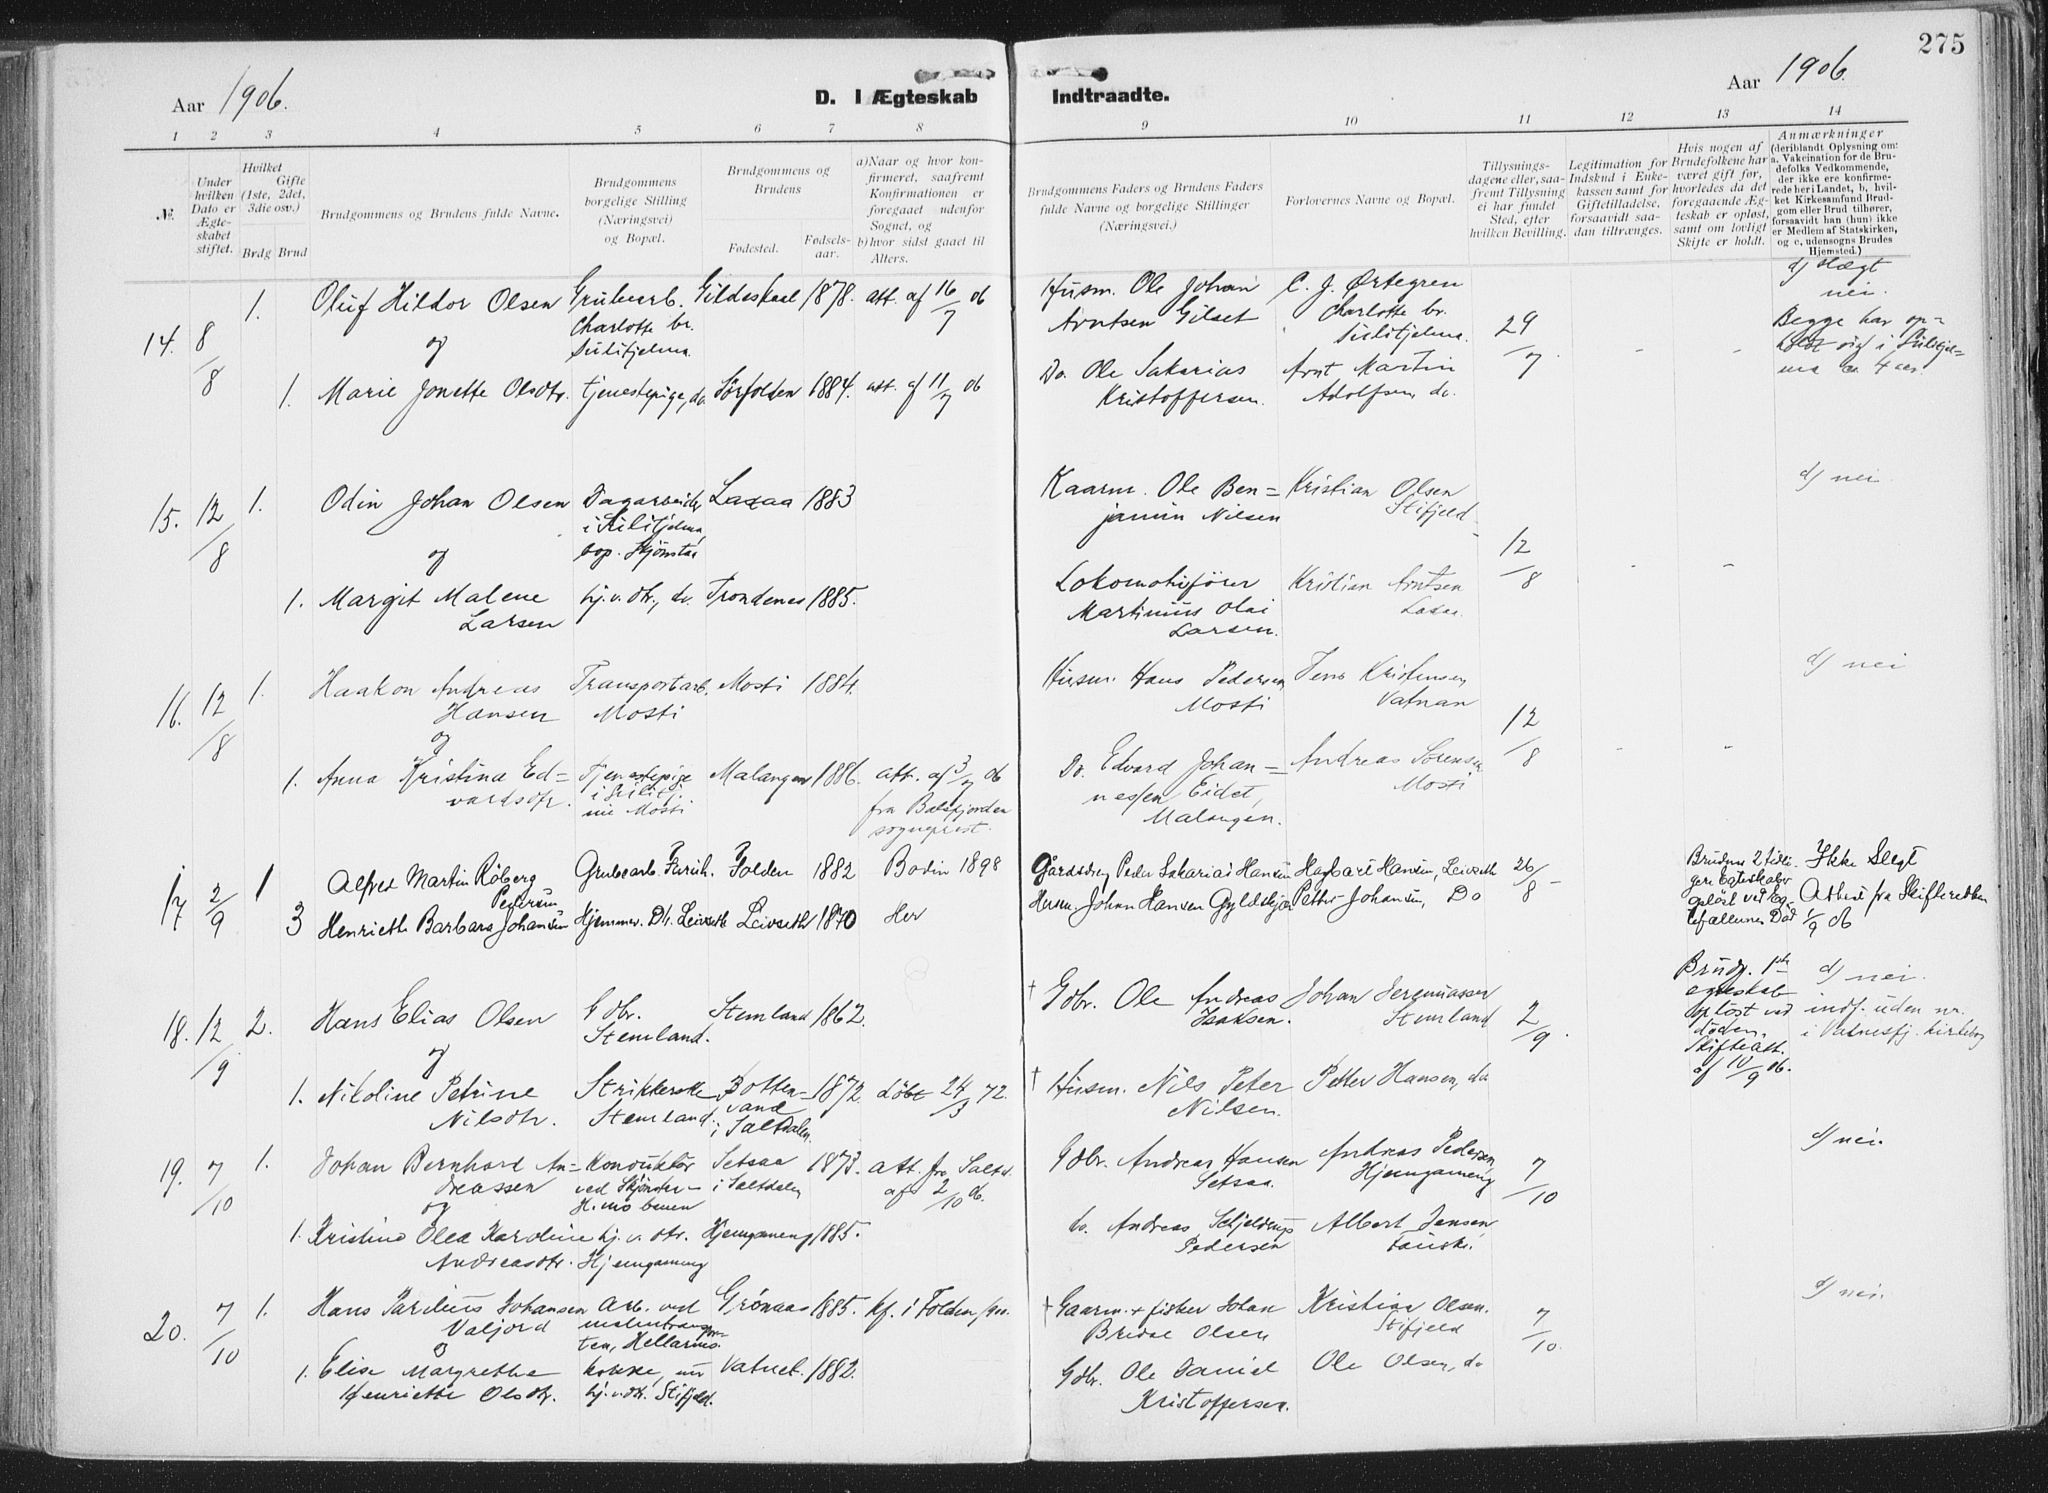 275
Aar 1906.
D. I Ægteskab Indtraadte.
Aar 1906.
1 2 3 4 5 6 7 8 9 10 11 12 13 14
№.
Under hvilken Dato er Ægteskabet stiftet.
Hvilket Gifte (1ste, 2det, 3die osv.)
Brdg Brud
Brudgommens og Brudens fulde Navne.
Brudgommens borgelige Stilling (Næringsvei) og Bopæl.
Brudgommens og Brudens
Fødested.
Fødsels-aar.
a) Naar og hvor konfirmeret, saafremt Konfirmationen er foregaaet udenfor Sognet, og b) hvor sidst gaaet til Alters.
Brudgommens Faders og Brudens Faders fulde Navne og borgelige Stillinger (Næringsvei.)
Forlovernes Navne og Bopæl.
Tillysnings-dagene eller, saafremt Tillysning ei har fundet Sted, efter hvilken Bevilling.
Legitimation for Indskud i Enkekassen samt for Giftetilladelse, forsaavidt saadan tiltrænges.
Hvis nogen af Brudefolkene har været gift før, hvorledes da det foregaaende Ægteskab er opløst, samt om lovligt Skifte er holdt.
Anmærkninger (deriblandt Oplysning om: a. Vakcination for de Brudefolks Vedkommende, der ikke ere konfirmerede her i Landet, b, hvilket Kirkesamfund Brudgom eller Brud tilhører, forsaavidt han (hun) ikke er Medlem af Statskirken, og c, udensogns Brudes Hjemsted.)
14. 8/8 1. Oluf Hildor Olsen Grubearb. Charlotte br. Sulitjelma. Gildeskaal 1878. att. af 16/7 06
Husm. Ole Johan Arntsen Gilset C. J. Ørtegren Charlotte br. Sulitjelma. 29/7 d) Slægt nei. Begge har opholdt sig i Sulitjelma ca 4 aar.
og
1. Marie Jonette Olsdtr. tjenestepige, do. Sørfolden 1884. att. af 11/7 06
Do. Ole Sakarias Kristoffersen. Arnt Martin Adolfsen, do.
15. 12/8 1. Odin Johan Olsen Dagarbeider i Sulitjelma, bop. Skjønstaa Laxaa 1883
Kaarm. Ole Benjamin Nilsen Kristian Olsen Stifjeld 12/8 d) nei.
og
1. Margit Malene Larsen hj.v.dtr., do. Trondenes 1885.
Lokomotivfører Martinius Olai Larsen. Kristian Arntsen Laxaa.
16. 12/8 1. Haakon Andreas Hansen Transportarb. Mosti Mosti 1884.
Husm. Hans Pedersen Mosti Jens Kristensen Vatnan 12/8 d) nei
og
1. Anna Kristina Edvardsdtr. Tjenestepige i Sulitj. nu Mosti Malangen 1886. att. af 3/7 06 fra Balsfjorden sogneprest.
Do. Edvard Johannessen Eidet, Malangen. Andreas Sørensen Mosti
17 2/9 1 Alfred Martin Röberg Pedersen Grubearb. Furuh. Folden 1882 Bodin 1898
Gårdsdreng Peder Sakarias Hansen Hagbart Hansen, Leivseth 26/8 Brudens 2 tidligere Egteskaber opløst ved Egtefællernes Død Ikke Slegt Attest fra Skifteretten 1/9 06
3 Henriette Barbara Johansen Hjemmev. Dtr. Leivseth Leivseth 1870 Her
Husm. Johan Hansen Gyldskjær Petter Johansen, Do
18. 12/9 2. Hans Elias Olsen Gdbr. Stemland. Stemland 1862.
† Gdbr. Ole Andreas Isaksen. Johan Jeremiassen Stemland 2/9. Brudg. 1ste egteskab opløst ved døden. Skifteatt. af 10/9 06. d) nei. indf. uden nr. i Vatnesfj. kirkebog
og
1. Nikoline Petrine Nilsdtr. Strikkerske, Stemland. Bottenvand i Saltdalen. 1872. døbt 24/3 72.
† Husm. Nils Peter Nilsen. Petter Hansen, do
19. 7/10 1. Johan Bernhard Andreassen Konduktør ved Skjønstu-H.mo banen Setsaa i Saltdalen 1873. att. fra Saltd. af 2/10 06.
Gdbr. Andreas Hansen Setsaa. Andreas Pedersen Hjemgameng 7/10 d) nei.
og
1. Kristine Olea Karoline Andreasdtr. hj. v. dtr. Hjemgameng Hjemgameng 1885.
do. Andreas Schjeldrup Pedersen Albert Jensen, Fauske.
20. 7/10 1. Hans Parelius Johansen Valjord Arb. ved malmtransporten, Hellarmo. Grønaas 1885. kf. i Folden 1900.
† Gaarm. + fisker Johan Bredal Olsen Kristian Olsen. Stifjeld 7/10. d) nei.
og
1. Elise Margrethe Henriette Olsdtr. kokke, nu hj.v.dtr. Stifjeld. Vatnet. 1882.
Gdbr. Ole Daniel Kristoffersen. Ole Olsen, do